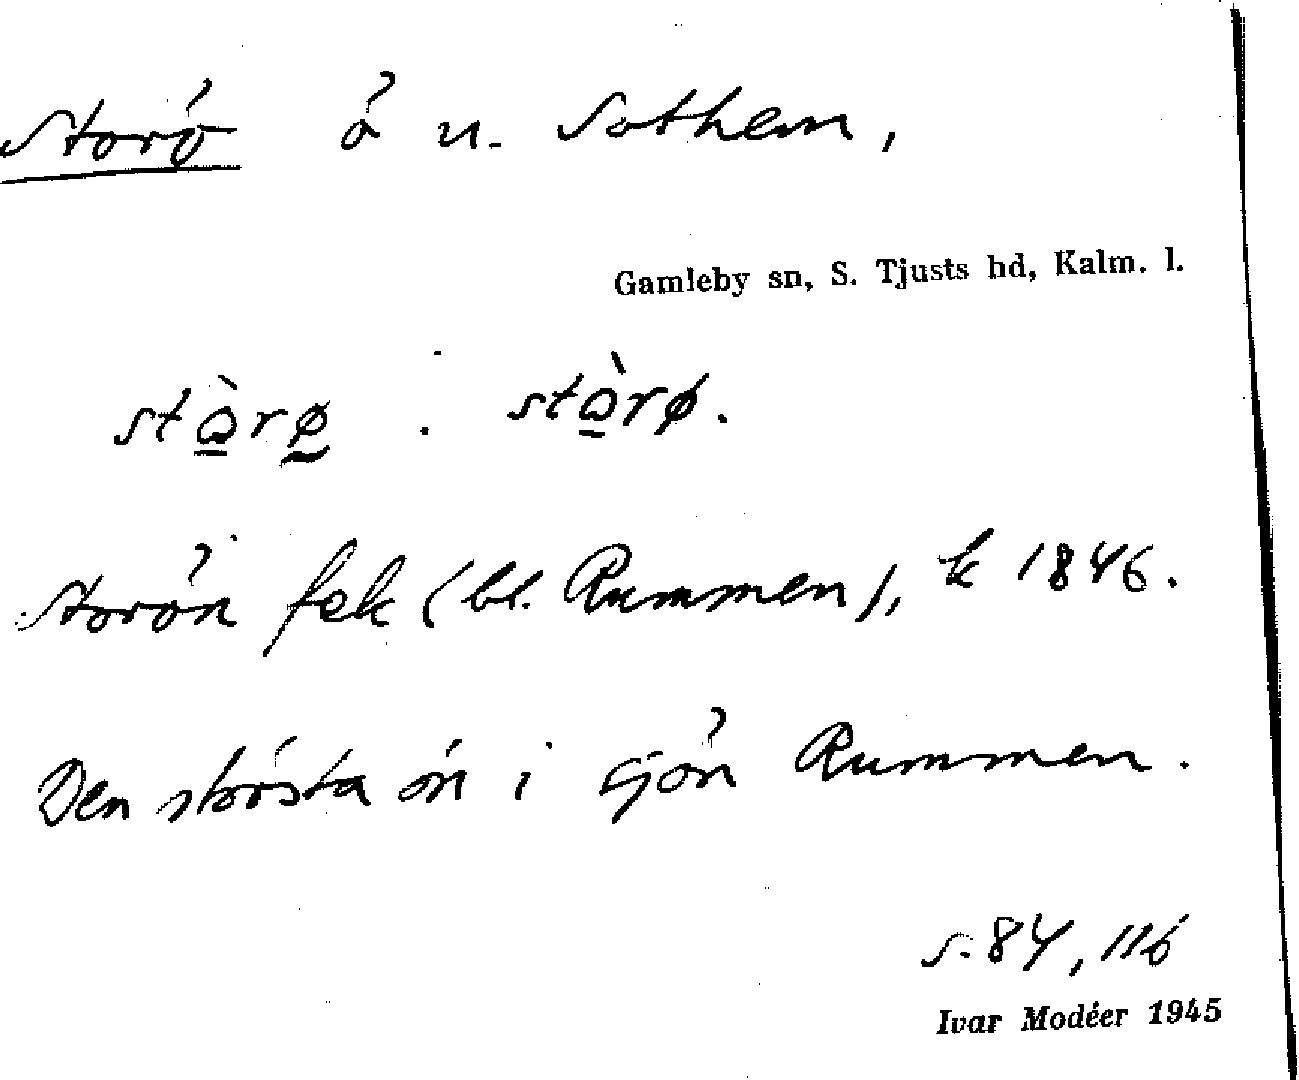 Storö ö u. Sothem,
Gamleby sn, S. Tjusts hd, Kalm. l.
stò̱rø̱ : stò̱rø.
Storön fsk (bl. Rummen), k 1846.
Den största ön i sjön Rummen.
s. 84, 116
Ivar Modéer 1945